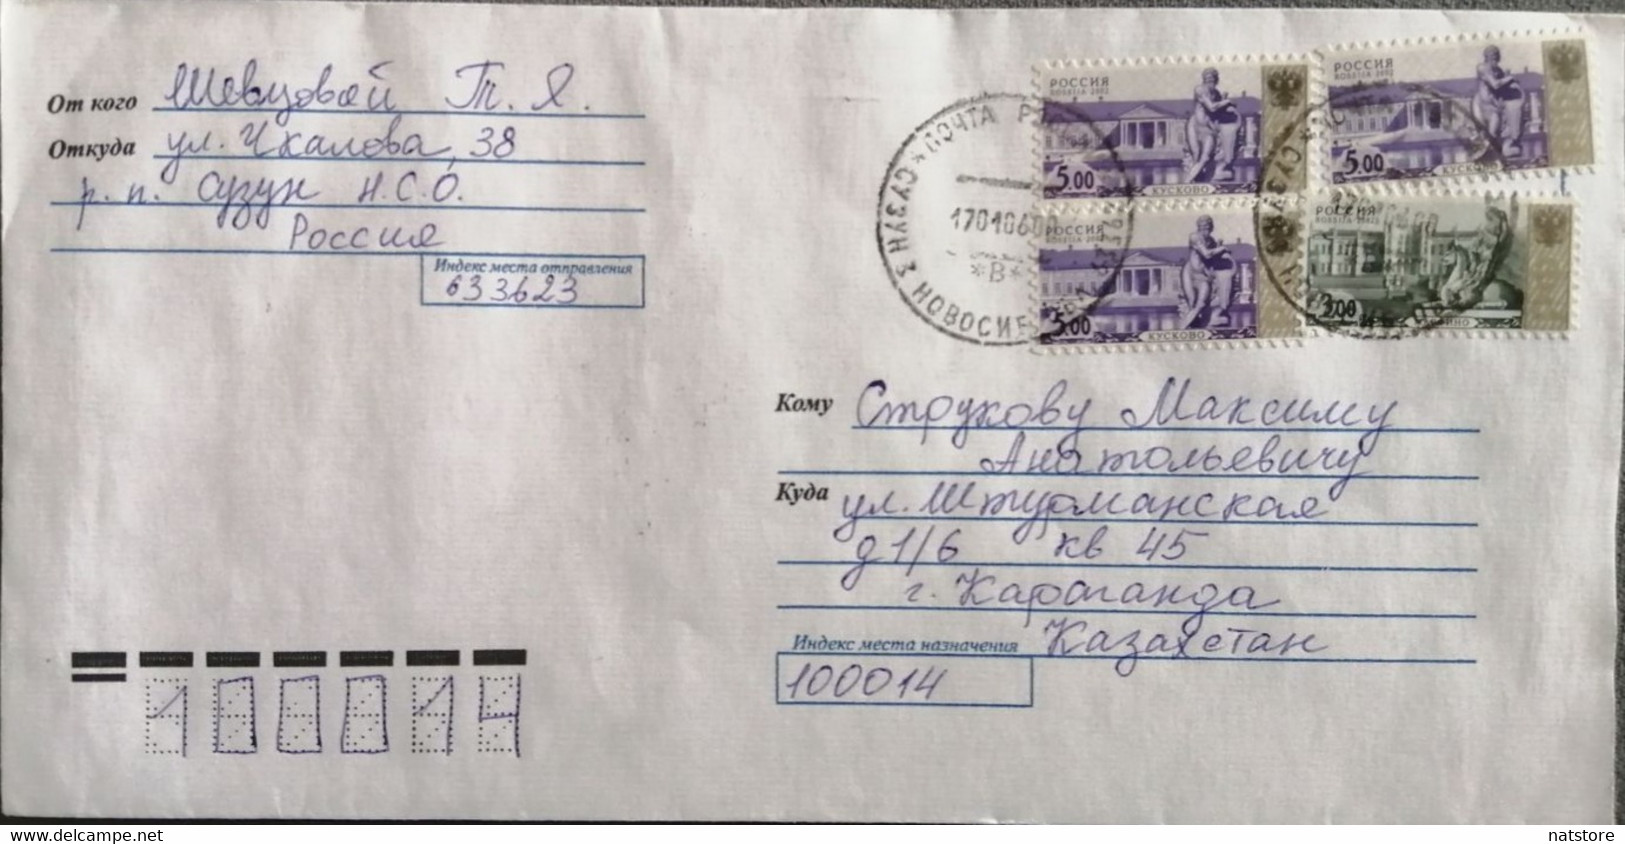 От кого Шевцовой Т. Я.
Откуда ул. Чкалова, 38
р. п. Сузун Н.С.О.
Россия
Индекс места отправления
633623
ПОЧТА
СУЗУН
НОВОСИБ
17010600
*В*
РОССИЯ
ROSSIJA 2002
5.00
КУСКОВО
РОССИЯ
ROSSIJA 2002
5.00
КУСКОВО
РОССИЯ
ROSSIJA 2002
5.00
КУСКОВО
РОССИЯ
ROSSIJA 2002
Кому Струкову Максиму
Анатольевичу
Куда ул. Штурманская
д 1/6 кв 45
г. Караганда
Казахстан
Индекс места назначения
100014
100014
www.delcampe.net
natstore